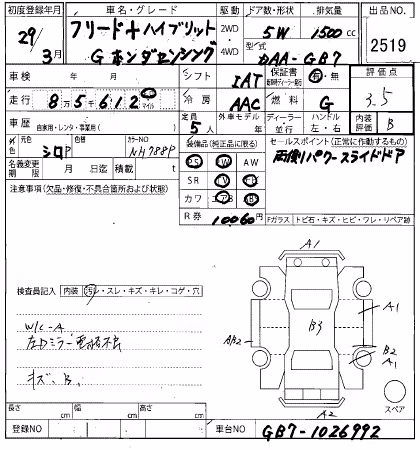 初度登録年月 車名・グレード 駆動 ドア数・形状 排気量 出品NO.
29/3月 フリード+ハイブリット 2WD 5W 1500cc 2519
Gホンダセンシング 4WD 型式 DAA-GB7
車検 年 月 シフト IAT 保証書 有・無 評価点
走行 8万5千612 マイル 冷房 AAC 燃料 G 3.5
車歴 自家用・レンタ・事業用( ) 定員 5人 外車モデル 年 ディーラー・並行 ハンドル 左・右 内装評価 B
色 元色 シロP 色替 カラーNO NH788P 装備品(純正品に限る) セールスポイント(正常に作動するもの)
PS PW AW 両側パワースライドドア
名義変更期限 月 日迄 積載量 t SR TV
注意事項(欠品・修復・不具合箇所および状態) カワ エアB
R券 10060円 Fガラス トビ石・キズ・ヒビ・ワレ・リペア跡
A1
検査員記入 内装 汚レ・スレ・キズ・キレ・コゲ・穴
A1
W/C-A B3
左Dミラー電格不良 AB2 B2
A1
キズ、B、
スペア
長さ cm 幅 cm 高さ cm A2
登録NO 車台NO GB7-1026992